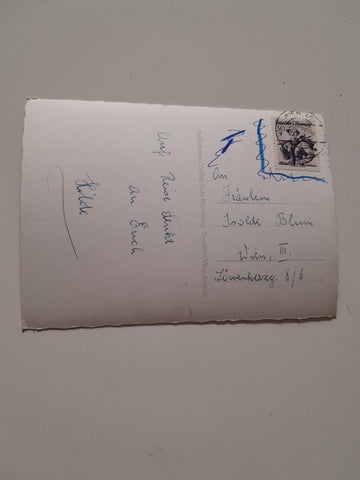 Auf Reise denkt
an Euch
Hilde
An
Fräulein
Isolde Blum
Wien, III.
Löwenherzg. 8/6